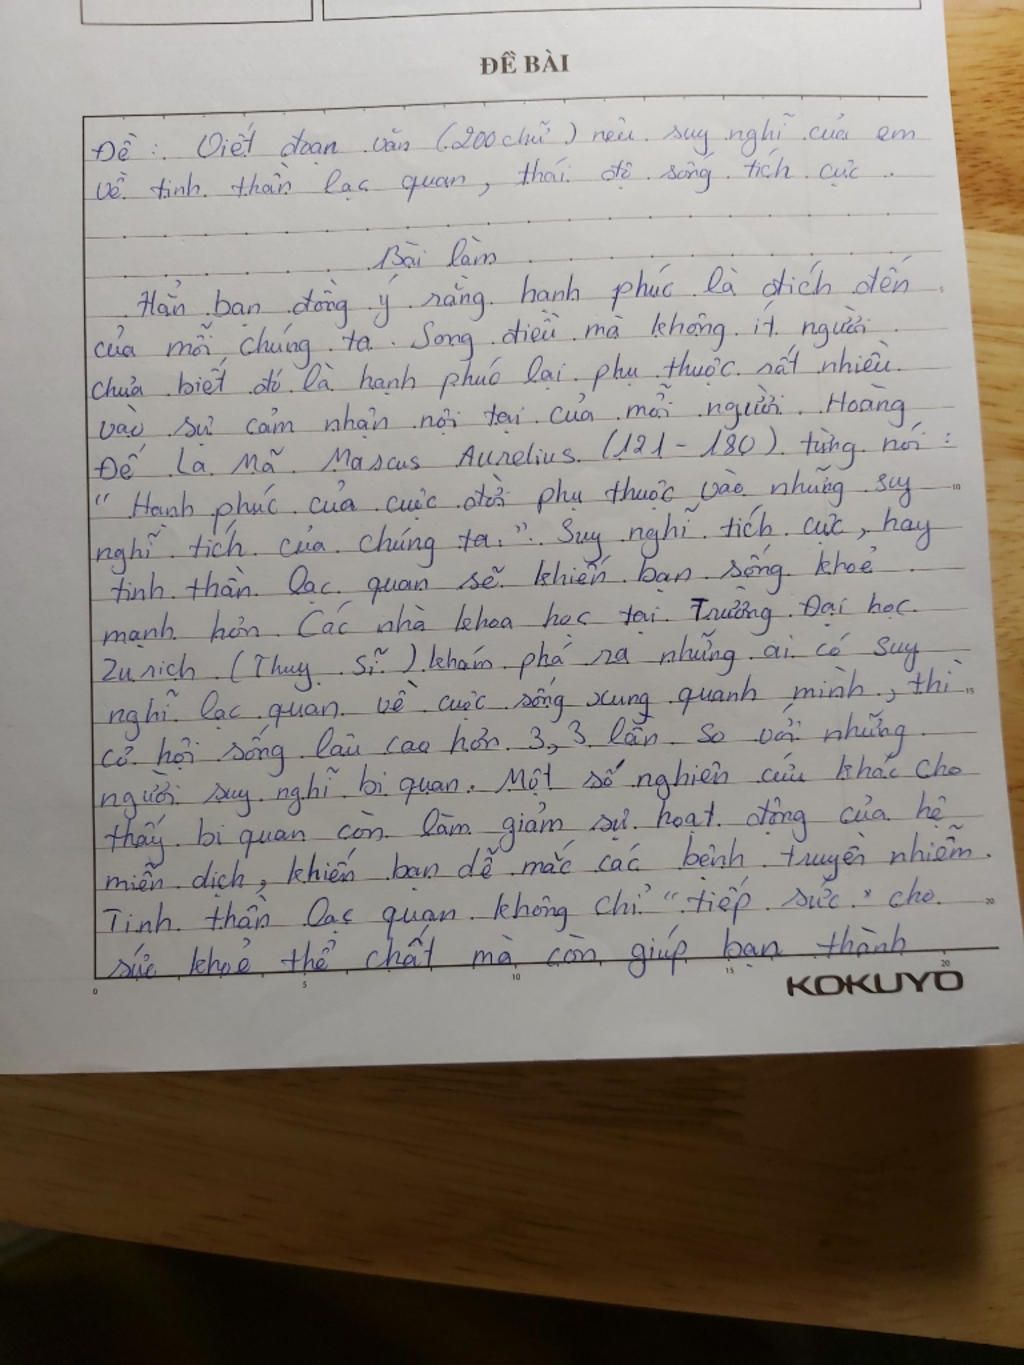 ĐỀ BÀI
Đề: Viết đoạn văn (200 chữ) nêu suy nghĩ của em
về tinh thần lạc quan, thái độ sống tích cực.
Bài làm
Hẳn bạn đồng ý rằng hạnh phúc là đích đến
của mỗi chúng ta. Song điều mà không ít người
chưa biết đó là hạnh phúc lại phụ thuộc rất nhiều
vào sự cảm nhận nội tại của mỗi người. Hoàng
Đế La Mã Marcus Aurelius (121-180) từng nói:
"Hạnh phúc của cuộc đời phụ thuộc vào những suy
nghĩ tích của chúng ta." Suy nghĩ tích cực, hay
tinh thần lạc quan sẽ khiến bạn sống khoẻ
mạnh hơn. Các nhà khoa học tại Trường Đại học
Zurich (Thuỵ Sĩ) khám phá ra những ai có suy
nghĩ lạc quan về cuộc sống xung quanh mình, thì
cơ hội sống lâu cao hơn 3,3 lần so với những
người suy nghĩ bi quan. Một số nghiên cứu khác cho
thấy bi quan còn làm giảm sự hoạt động của hệ
miễn dịch, khiến bạn dễ mắc các bệnh truyền nhiễm.
Tinh thần lạc quan không chỉ "tiếp sức" cho
sức khoẻ thể chất mà còn giúp bạn thành
10
15
20
0 5 10 15 20
KOKUYO